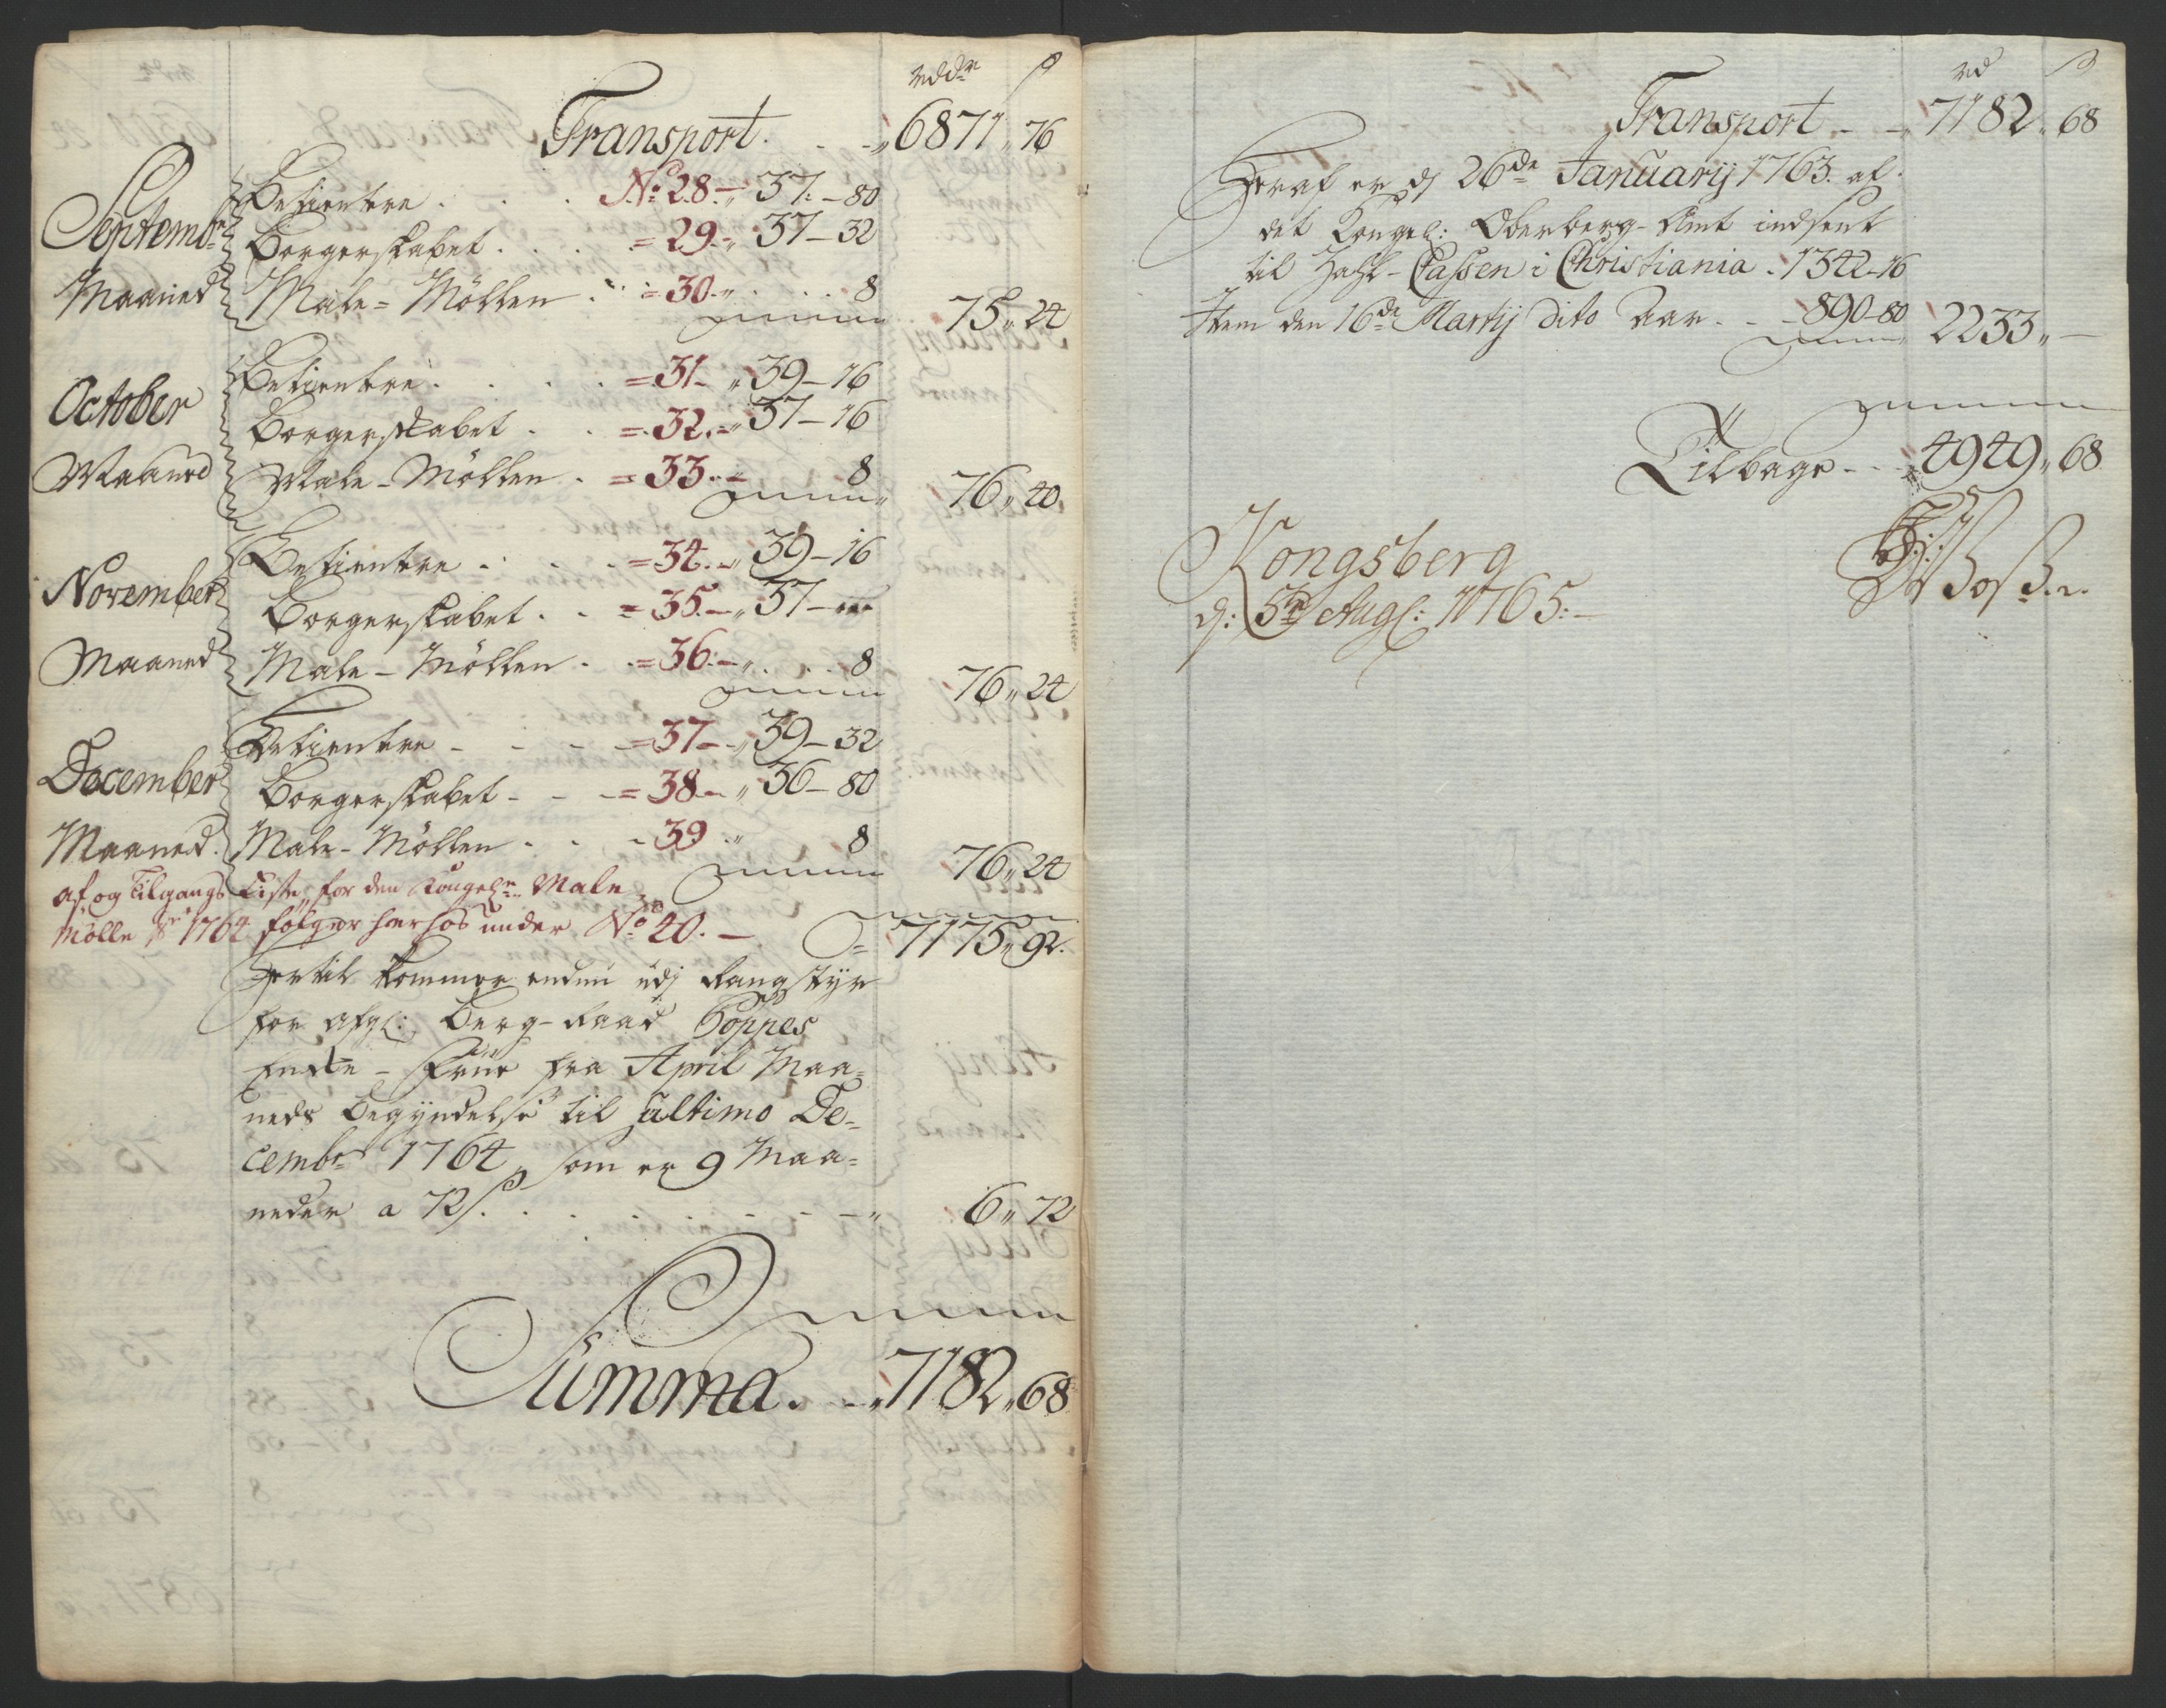 rdd.r ß
Transport. . . „6871„76
September Betientere . . . No: 28. „ 37. – 80
Borgerskabet . . . = 29. „ 37 – 32
Maaned Male-Möllen . . = 30. „ . . 8
75„24
October Betientere . . . = 31 – „ 39 – 16
Borgerskabet . . = 32. – „ 37 – 16
Maaned Male-Möllen . = 33. – „ 8
76„40
November Betientere . . . = 34. – „ 39 – 16
Borgerskabet . . = 35. – „ 37 –
Maaned Male-Möllen . . = 36. – „ . . 8
76„24
December Betientere – – – = 37 – „ 39 – 32
Borgerskabet – – – = 38 – „ 36 – 80
Maaned. Male-Möllen . . . – 39 „ 8
76„24
af og Tilgangs Liste for den Kongel: Male
Mölle pr 1764 fölger herhos under No 40. –
= 7175„92.
Hertil kommer endnu udj Rangstyr
for afgl: Berg-Raad Poppes
Enke-Frue fra April Maa=
neds Begyndelse til ultimo De=
cembr 1764, som er 9 Maa=
neder a 72 ß. . . . . . – – „ 6„72
Summa. – „7182„68
rd ß
Transport – – „7182„68
Heraf er dj 26de January 1763. af
det Kongel: Oberberg-Amt indsent
til Zahl-Cassen i Christiania . 1342-16
Item den 16de Martij dito Aar. . – 890-80 2233„ –
Tilbage – – „4949„68
Kongsberg
d: 5te Aug: 1765: –